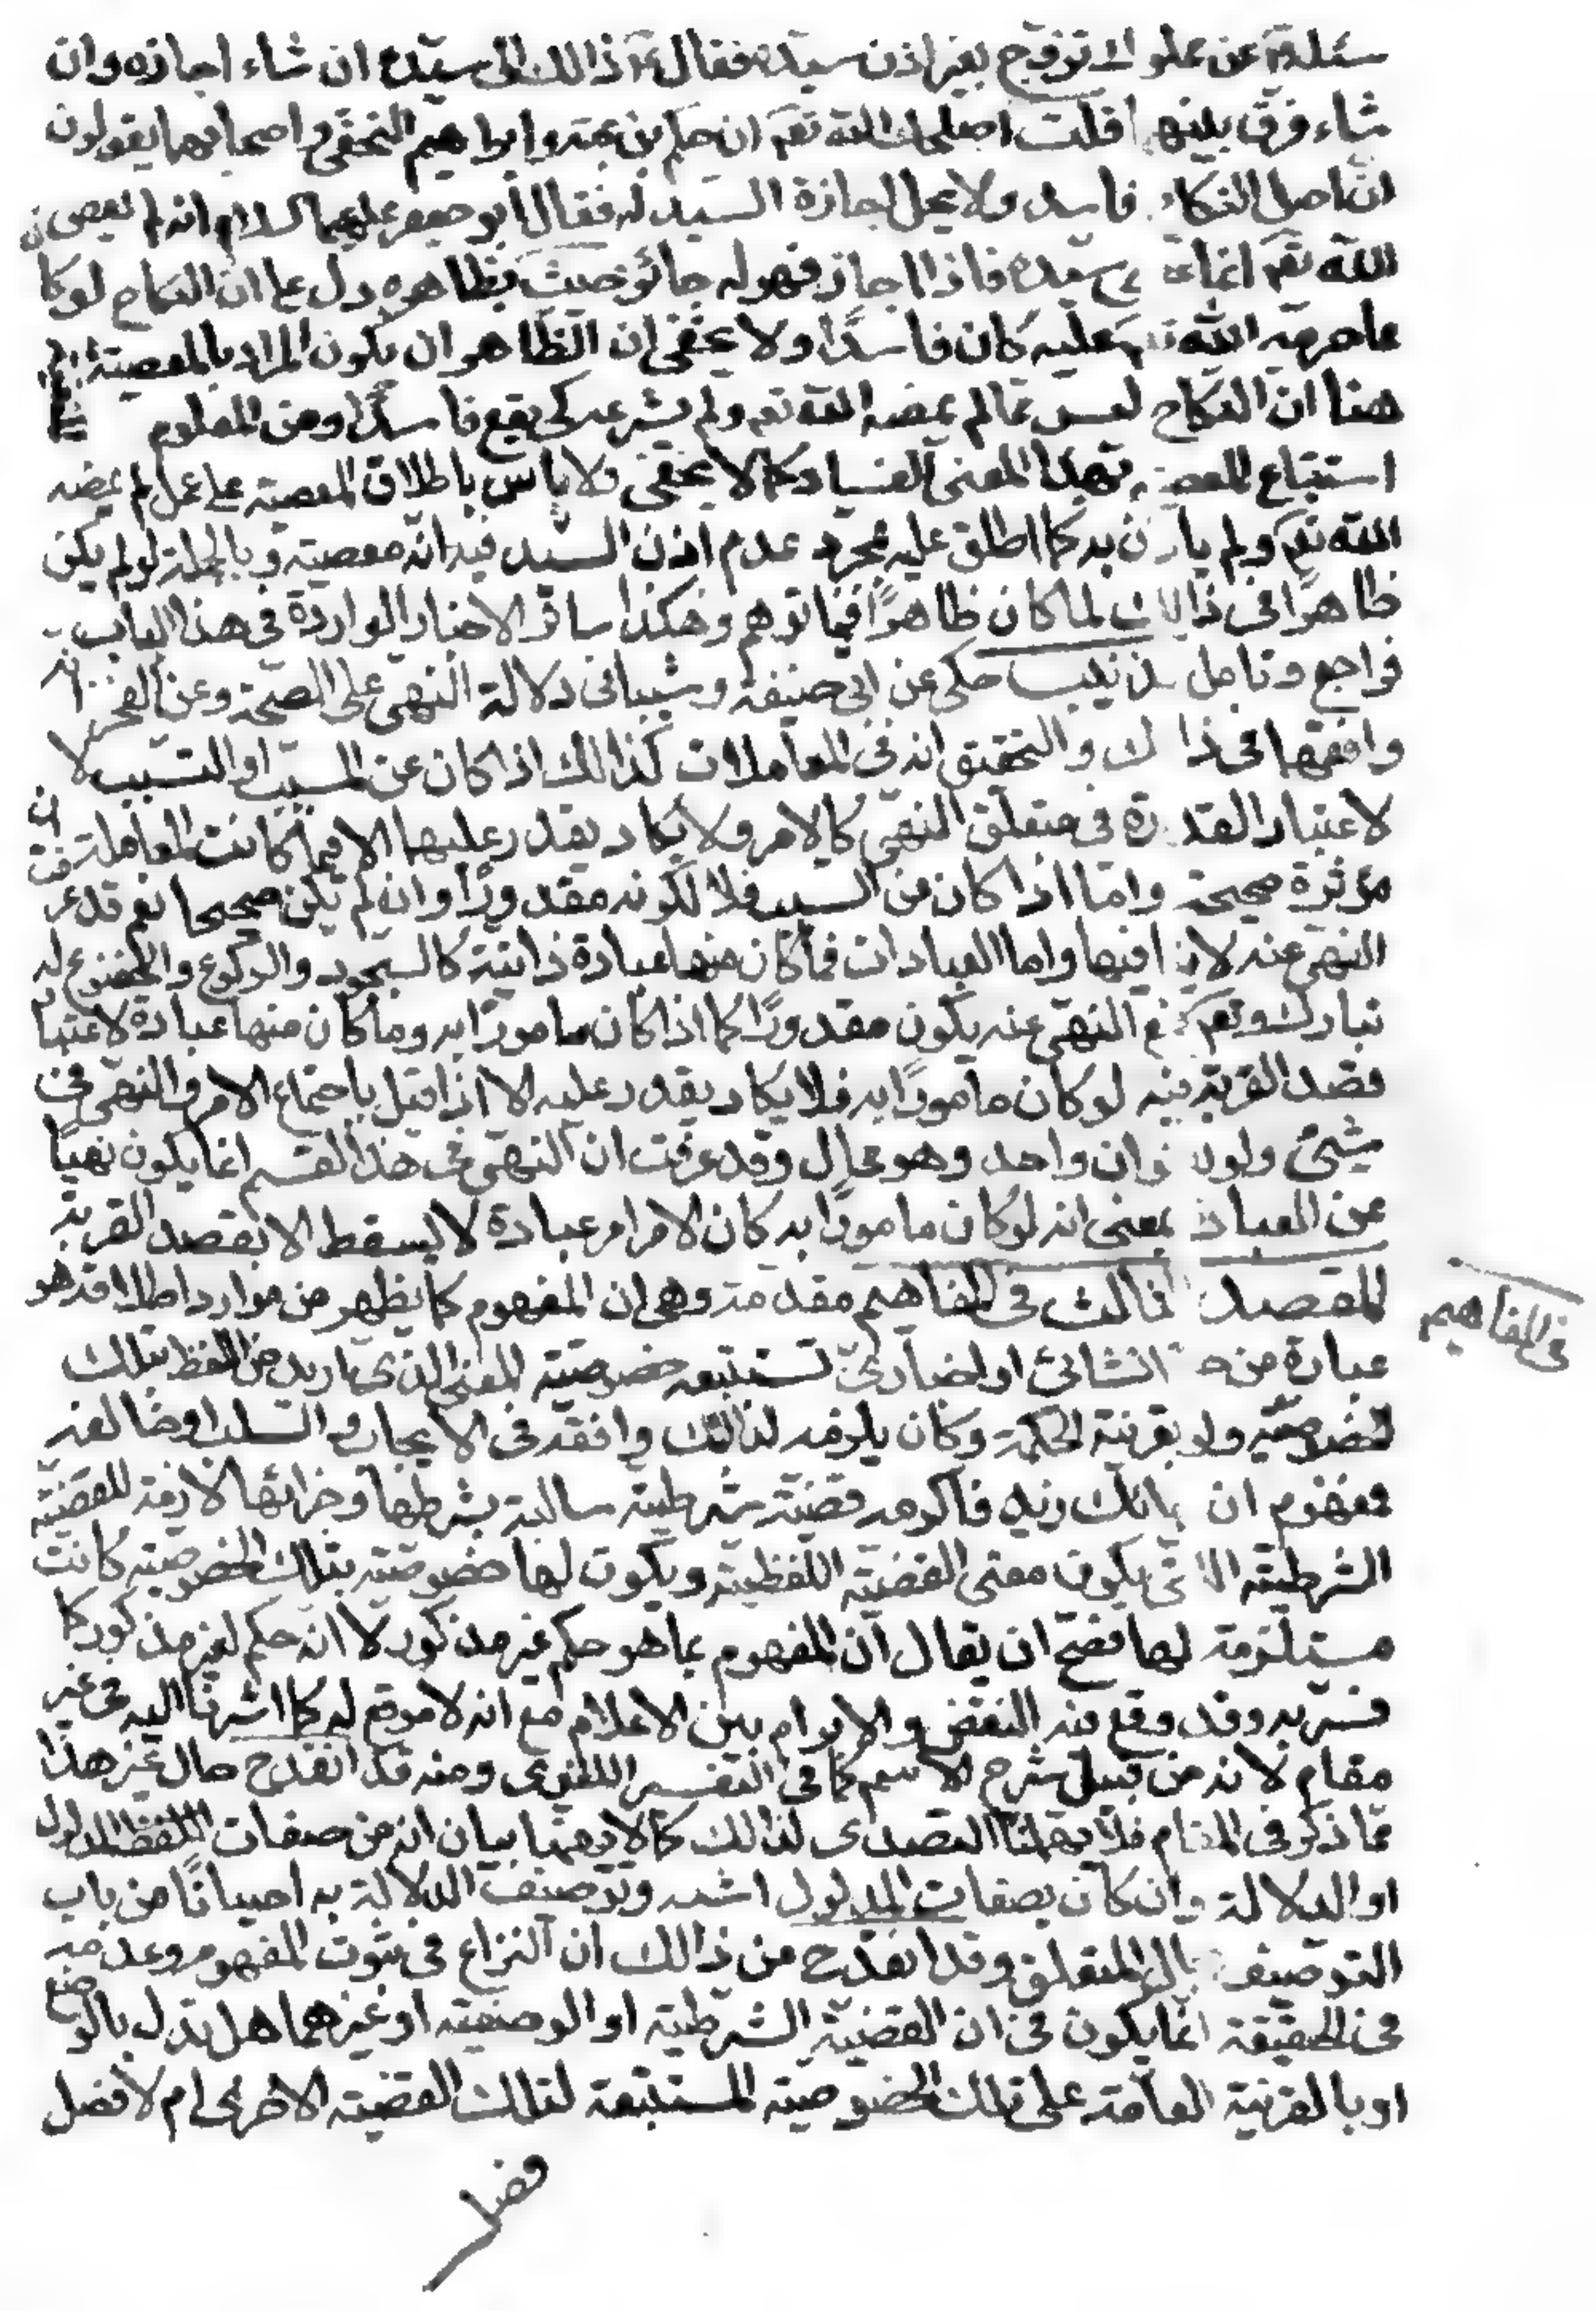 سئله عن مملوك تزوج بغير اذن سيده فقال ذالك الى سيده ان شاء اجازه وان
شاء فرق بينهما قلت اصلحك الله تعم ان حكم بن عتبة وابراهيم النخعي واصحابهما يقولون
ان اصل النكاح فاسد ولا يحل اجازة السيد له فقال ابو جعفر عليهما السلام انه لم يعص
الله تعم انما عصى سيده فاذا اجاز فهو له جائز حيث بظاهره دل على ان النكاح لو كا
مما حرمه الله تعم عليه كان فاسدًا ولا يخفى ان الظاهر ان يكون المراد بالمعصية المنفية
هنا ان النكاح ليس مما لم يمضه الله تعم ولم يشرعه كى يقع فاسدًا ومن المعلوم
استتباع المعصية بهذا المعنى للفساد كما لا يخفى ولا باس باطلاق المعصية على عمل لم يمضه
الله تعم ولم ياذن به كما اطلق عليه بمجرد عدم اذن السيد فيه انه معصية وبالجملة لو لم يكن
ظاهرًا فى ذالك لما كان ظاهرًا فيما توهم وهكذا سائر الاخبار الواردة فى هذا الباب
فراجع وتامل تذنيب حكى عن ابى حنيفة وشيبانى دلالة النهى على الصحة وعن الفخر انه
وافقهما فى ذالك والتحقيق انه فى المعاملات كذالك اذا كان عن المسبب او التسبيب لا
لاعتبار القدرة فى متعلق النهى كالامر ولا يكاد يقدر عليهما الا فيما كانت المعاملة
مؤثرة صحيحة واما اذا كان من السبب فلا لكونه مقدورًا وان لم يكن صحيحا نعم قد عرفت ان
النهى عنه لا ينافيها واما العبادات فما كان منها عبادة ذاتية كالسجود والركوع والخضوع له
تبارك وتعم فمع النهى عنه يكون مقدورًا كما اذا كان مامورًا به وما كان منها عبادة لاعتبار
قصد القربة فيه لو كان مامورًا به فلا يكاد يقدر عليه الا اذا قيل باجتماع الامر والنهى فى
شيئ ولو بعنوان واحد وهو محال وقد عرفت ان النهى فى هذا القسم انما يكون نهيًا
عن العبادة بمعنى انه لو كان مامورًا به كان الامر امر عبادة لا يسقط الا بقصد القربة
المقصد الثالث فى المفاهيم مقدمة وهى ان المفهوم كما يظهر من موارد اطلاقه هو
فى المفاهيم
عبارة من حكم انشائى او اخبارى تستتبعه خصوصية المعنى الذى اريد من اللفظ بتلك
الخصوصية ولو بقرينة الحكمة وكان يلزمه لذالك وافقه فى الايجاب والسلب او خالفه
فمفهوم ان جائك زيد فاكرمه قضية شرطية سالبة بشرطها وجزائها لازمة للقضية
الشرطية التى يكون معنى القضية اللفظية ويكون لها خصوصية بتلك الخصوصية كانت
مستلزمة لها فصح ان يقال ان المفهوم بما هو حكم غير مذكور لا انه حكم لغير مذكور كما
فسر به وقد وقع فيه النقض والابرام بين الاعلام مع انه لا موقع له كما اشرنا اليه فى غير
مقام لانه من قبيل شرح الاسم كما فى التفسير اللغوى ومنه قد انقدح حال غير هذا
مما ذكر فى المقام فلا يهمنا التصدى لذالك كما لا يهمنا بيان انه من صفات المدلول
او الدلالة وان كان بصفات المدلول اشبه وتوصيف الدلالة به احيانًا من باب
التوصيف بحال المتعلق وقد انقدح من ذالك ان النزاع فى ثبوت المفهوم وعدمه
فى الحقيقة انما يكون فى ان القضية الشرطية او الوصفية او غيرهما هل تدل بالوضع
او بالقرينة العامة على تلك الخصوصية المستتبعة لتلك القضية الاخرى ام لا فصل
فصل